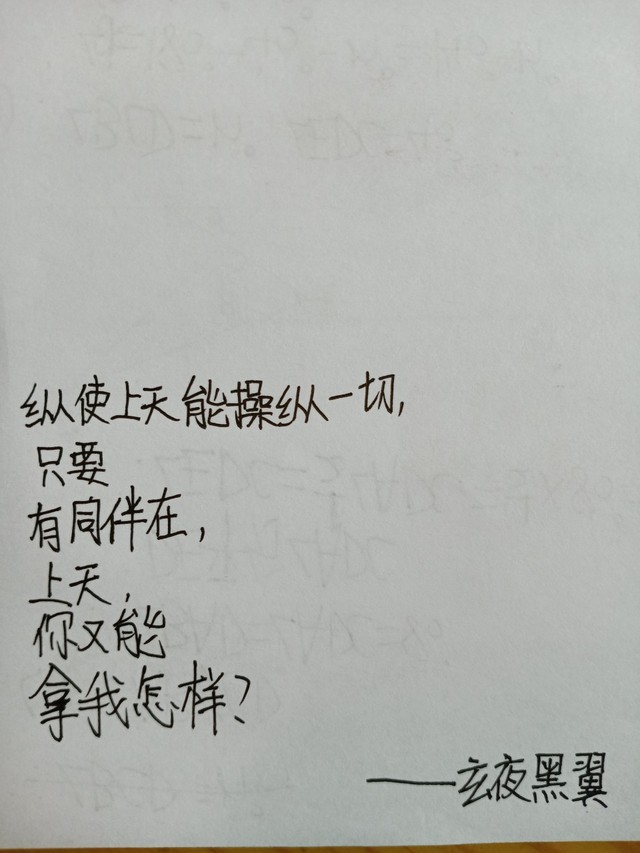 纵使上天能操纵一切,
只要
有同伴在,
上天,
你又能
拿我怎样?
——玄夜黑翼